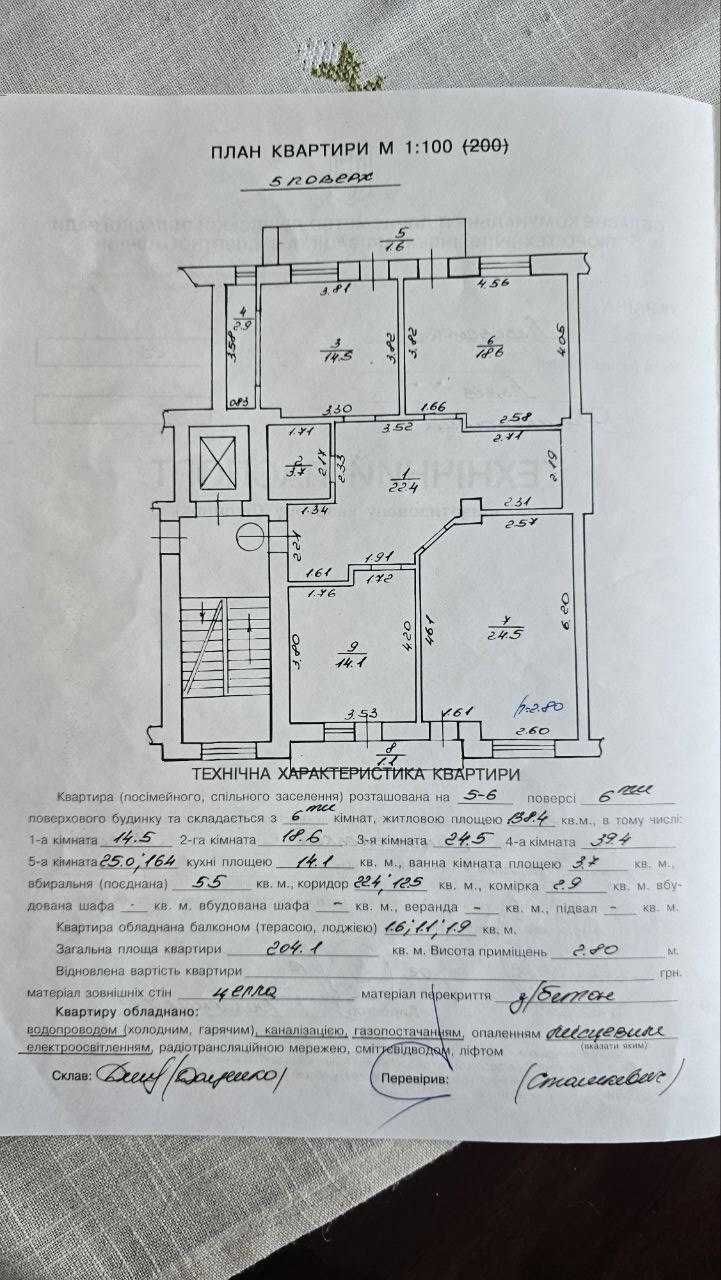 ПЛАН КВАРТИРИ М 1:100 (200)
5 ПОВЕРХ
5
1.6
3.81
4.56
4
2.9
3.58
3
14.5
3.82
3.82
6
18.6
4.05
083
3.30
3.52
1.66
2.58
1.71
2.71
2
3.7
2.17
2.33
1
22.4
2.19
1.34
2.31
2.57
2.21
1.61
1.91
1.76
1.72
3.80
9
14.1
4.20
4.61
7
24.5
6.20
3.53
1.61
h=2.80
2.60
8
1.1
ТЕХНІЧНА ХАРАКТЕРИСТИКА КВАРТИРИ
Квартира (посімейного, спільного заселення) розташована на 5-6 поверсі 6ти
поверхового будинку та складається з 6ти кімнат, житловою площею 138.4 кв.м., в тому числі:
1-а кімната 14.5 2-га кімната 18.6 3-я кімната 24.5 4-а кімната 39.4
5-а кімната 25.0; 16.4 кухні площею 14.1 кв. м., ванна кімната площею 3.7 кв. м.,
вбиральня (поєднана) 5.5 кв. м., коридор 22.4; 12.5 кв. м., комірка 2.9 кв. м. вбу-
дована шафа - кв. м. вбудована шафа - кв. м., веранда - кв. м., підвал - кв. м.
Квартира обладнана балконом (терасою, лоджією) 1.6; 1.1; 1.9 кв. м.
Загальна площа квартири 204.1 кв. м. Висота приміщень 2.80 м.
Відновлена вартість квартири грн.
матеріал зовнішніх стін цегла матеріал перекриття з/бетон
Квартиру обладнано:
водопроводом (холодним, гарячим), каналізацією, газопостачанням, опаленням місцевим
електроосвітленням, радіотрансляційною мережею, сміттєвідводом, ліфтом (вказати яким)
Склав: Перевірив: (Сташкевич)